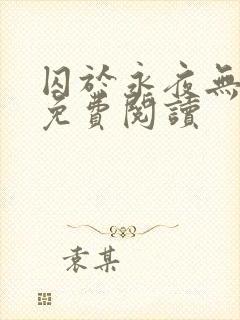 囚於永夜無
免費閱讀
袁某